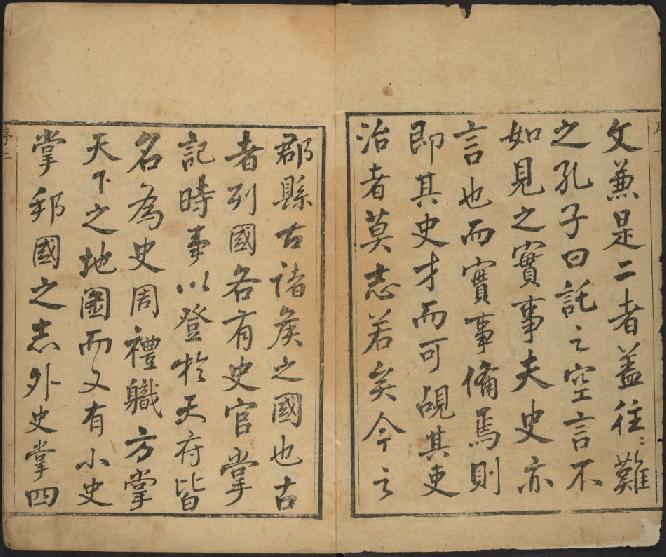 文蒹是二者蓋往〻難
之孔子曰託之空言不
如見之實事夫史亦
言也而實事備焉則
即其史才而可覘其吏
治者莫志若矣今之
郡縣古諸矦之國也古
者列國各有史官掌
記時事以登於天府皆
名為史周禮職方掌
天下之地圖而又有小史
掌邦國之志外史掌四